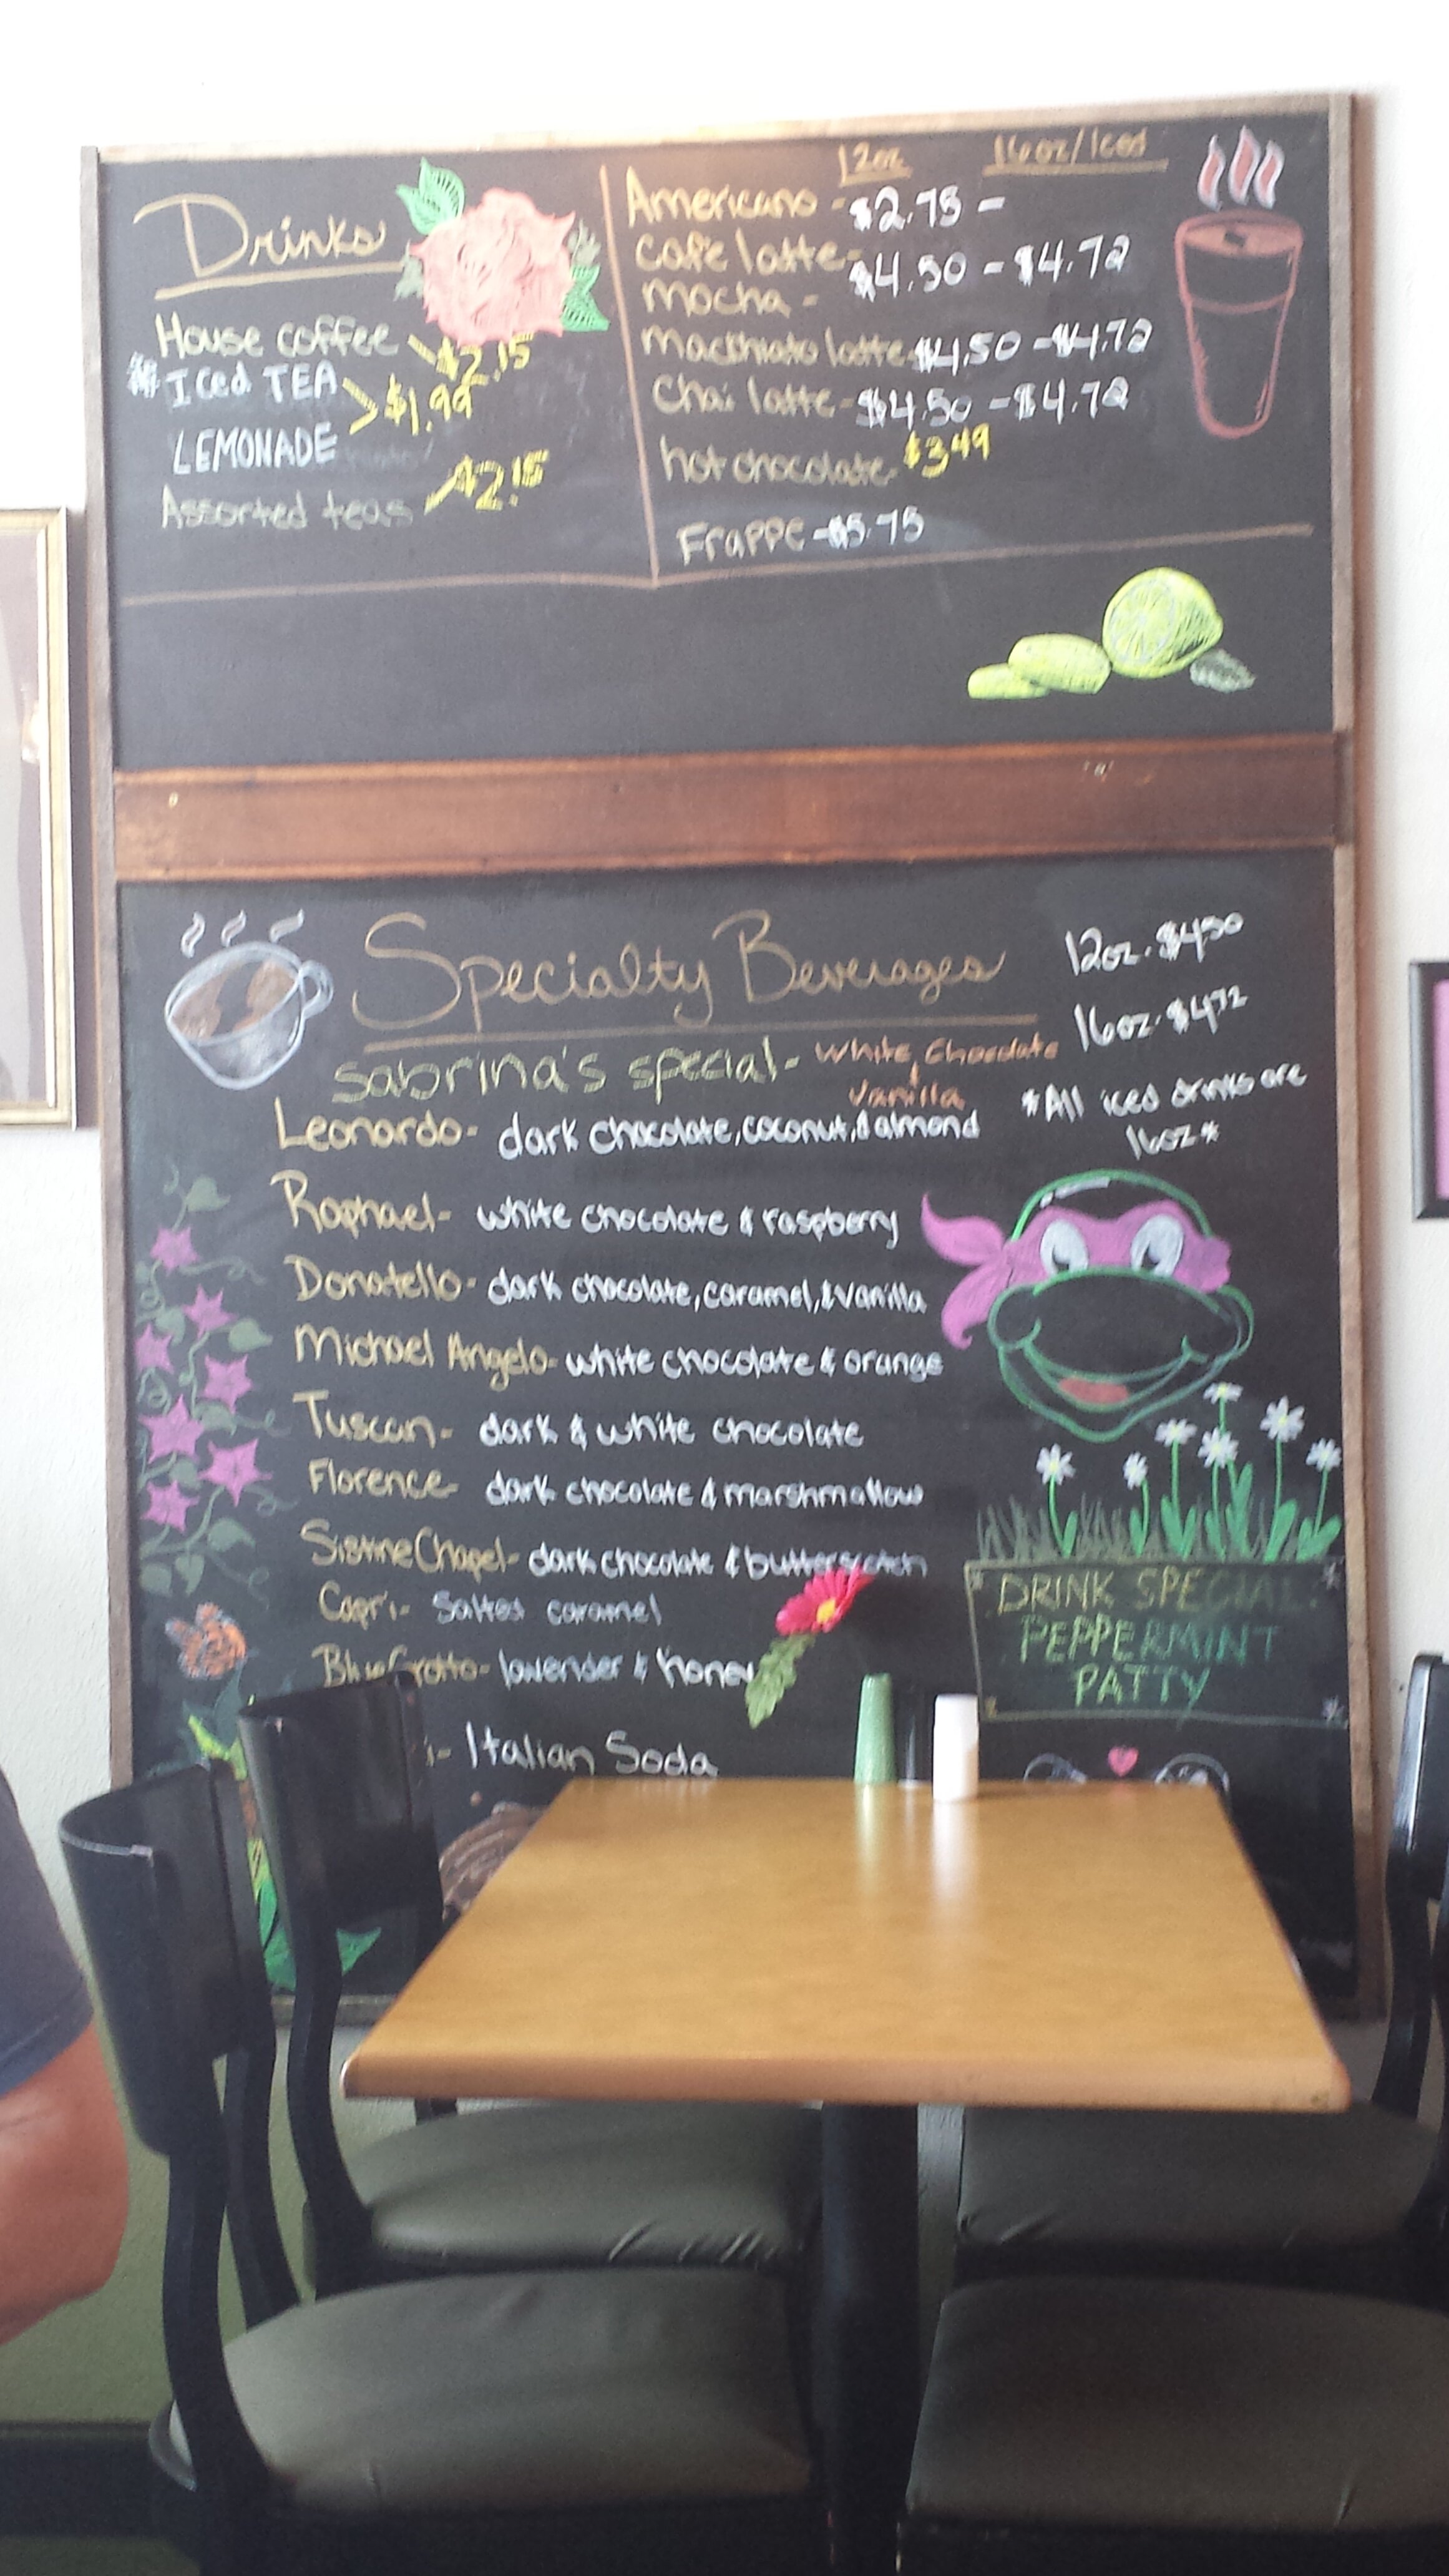 Drinks
House coffee $2.15
Iced TEA
LEMONADE
$1.99
Assorted teas $2.15
12oz 16oz/Iced
Americano - $2.75 -
Cafe latte -
$4.50 - $4.72
Mocha -
Macchiato latte $4.50 - $4.72
Chai latte - $4.50 - $4.72
hot chocolate - $3.49
Frappe - $5.75
Specialty Beverages
12oz - $4.50
16oz - $4.72
*All iced drinks are
16oz*
sabrina's special - White Chocolate
& Vanilla
Leonardo - dark chocolate, coconut, & almond
Raphael - white chocolate & raspberry
Donatello - dark chocolate, caramel, & vanilla
Michael Angelo - white chocolate & orange
Tuscan - dark & white chocolate
Florence - dark chocolate & marshmallow
Sistine Chapel - dark chocolate & butterscotch
Capri - Salted caramel
Blue Grotto - lavender & honey
- Italian Soda
DRINK SPECIAL:
PEPPERMINT
PATTY